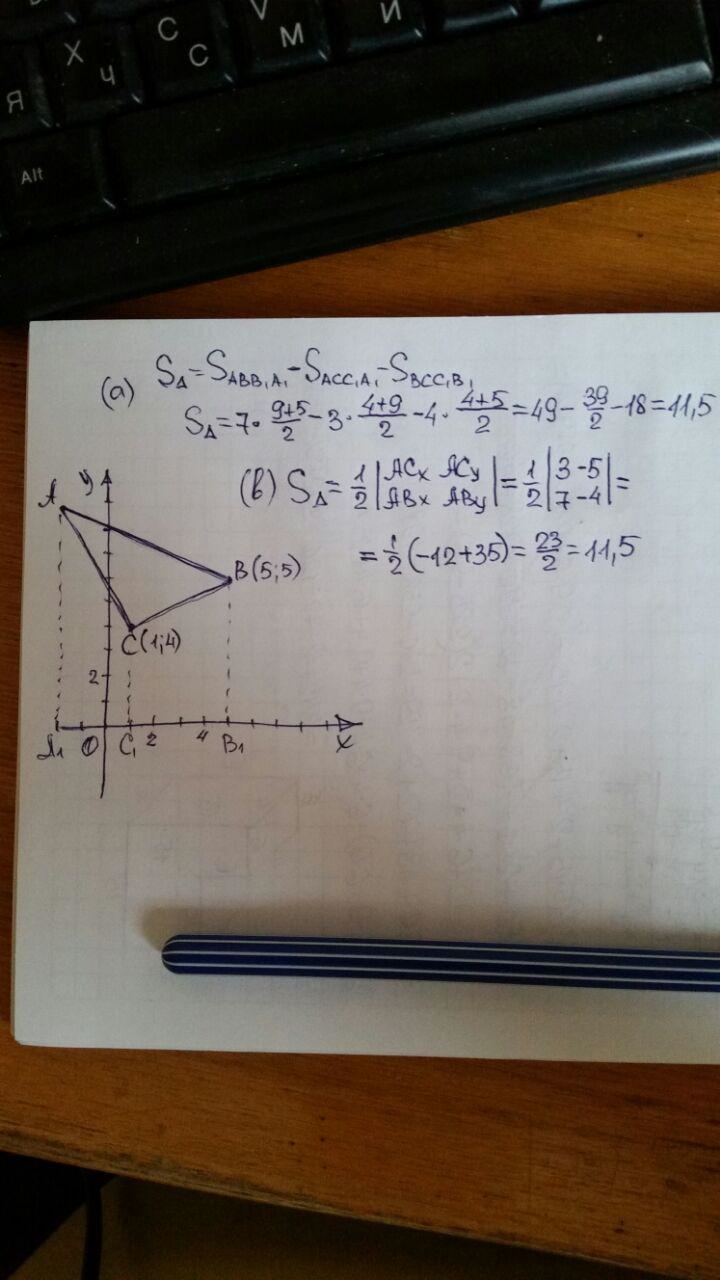 С V И
Х С М
Я Ч
Alt
(a) S△=S_ABB₁A₁-S_ACC₁A₁-S_BCC₁B₁
S△=7·(9+5)/2-3·(4+9)/2-4·(4+5)/2=49-39/2-18=11,5
(b) S△=1/2|ACx ACy; ABx ABy|=1/2|3 -5; 7 -4|=
=1/2(-12+35)=23/2=11,5
y
A
B(5;5)
C(1;4)
2
A₁ O C₁ 2 4 B₁ x